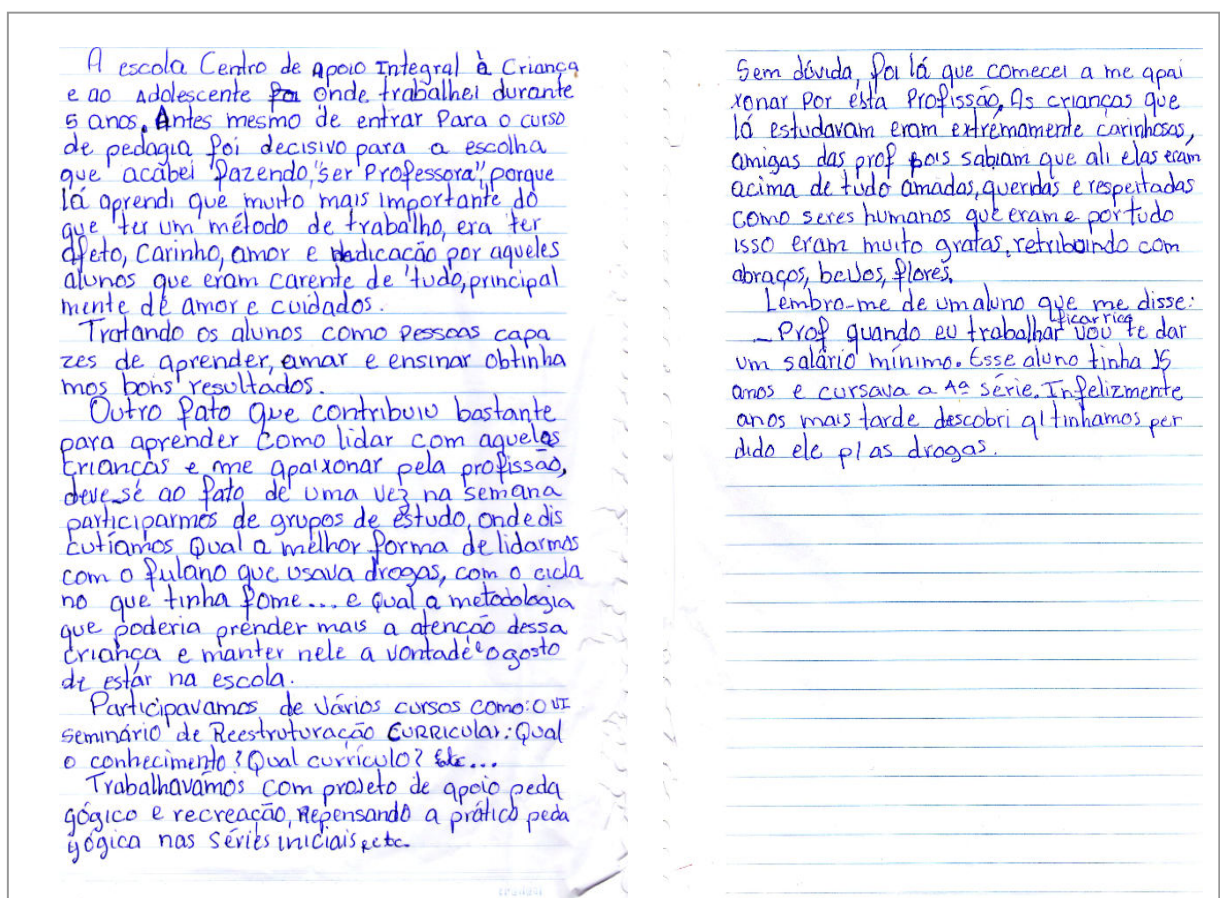 A escola Centro de Apoio Integral à Criança
e ao Adolescente foi onde trabalhei durante
5 anos. Antes mesmo de entrar para o curso
de pedagia foi decisivo para a escolha
que acabei fazendo, "ser Professora", porque
lá aprendi que muito mais importante do
que ter um método de trabalho, era ter
afeto, carinho, amor e dedicação por aqueles
alunos que eram carente de tudo, principal
mente de amor e cuidados.
Tratando os alunos como pessoas capa
zes de aprender, amar e ensinar obtinha
mos bons resultados.
Outro fato que contribuiu bastante
para aprender como lidar com aquelas
crianças e me apaixonar pela profissão,
deve-se ao fato de uma vez na semana
participarmos de grupos de estudo, onde dis
cutíamos Qual a melhor forma de lidarmos
com o fulano que usava drogas, com o cicla
no que tinha fome... e qual a metodologia
que poderia prender mais a atenção dessa
criança e manter nele a vontade e o gosto
de estar na escola.
Participavamos de vários cursos como: O VI
seminário de Reestruturação Curricular: Qual
o conhecimento? Qual currículo? Etc...
Trabalhavámos com projeto de apoio peda
gógico e recreação, Repensando a prática peda
gógica nas séries iniciais, etc.
Sem dúvida, foi lá que comecei a me apai
xonar por esta profissão. As crianças que
lá estudavam eram extremamente carinhosas,
amigas das prof pois sabiam que ali elas eram
acima de tudo amadas, queridas e respeitadas
como seres humanos que eram e por tudo
isso eram muito gratas, retribuindo com
abraços, beijos, flores.
Lembro-me de um aluno que me disse:
_ Prof quando eu trabalhar ficar rico vou te dar
um salário mínimo. Esse aluno tinha 15
anos e cursava a 4ª série. Infelizmente
anos mais tarde descobri q/ tinhamos per
dido ele p/ as drogas.